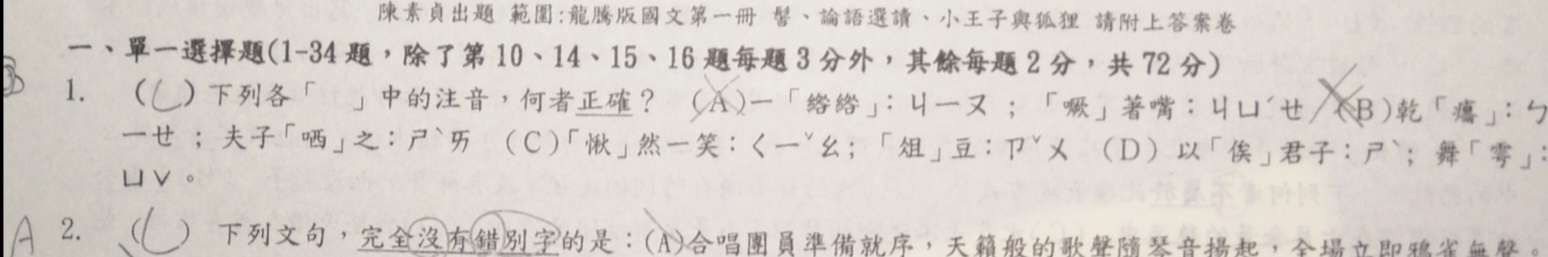 陳素貞出題 範圍:龍騰版國文第一冊 髻、論語選讀、小王子與狐狸 請附上答案卷
一、單一選擇題(1-34題,除了第10、14、15、16題每題3分外,其餘每題2分,共72分)
1. ( ) 下列各「 」中的注音,何者正確? (A)一「綹綹」:ㄐㄧㄡ ; 「噘」著嘴:ㄐㄩˊㄝ (B)乾「癟」:ㄅ
ㄧㄝ ; 夫子「哂」之:ㄕˋㄞ (C)「愀」然一笑:ㄑㄧˇㄠ; 「俎」豆:ㄗˇㄨ (D) 以「俟」君子:ㄕˋ; 舞「雩」:
ㄩˇ。
A 2. ( ) 下列文句,完全沒有錯別字的是:(A)合唱團員準備就序,天籟般的歌聲隨琴音揚起,全場立即鴉雀無聲。